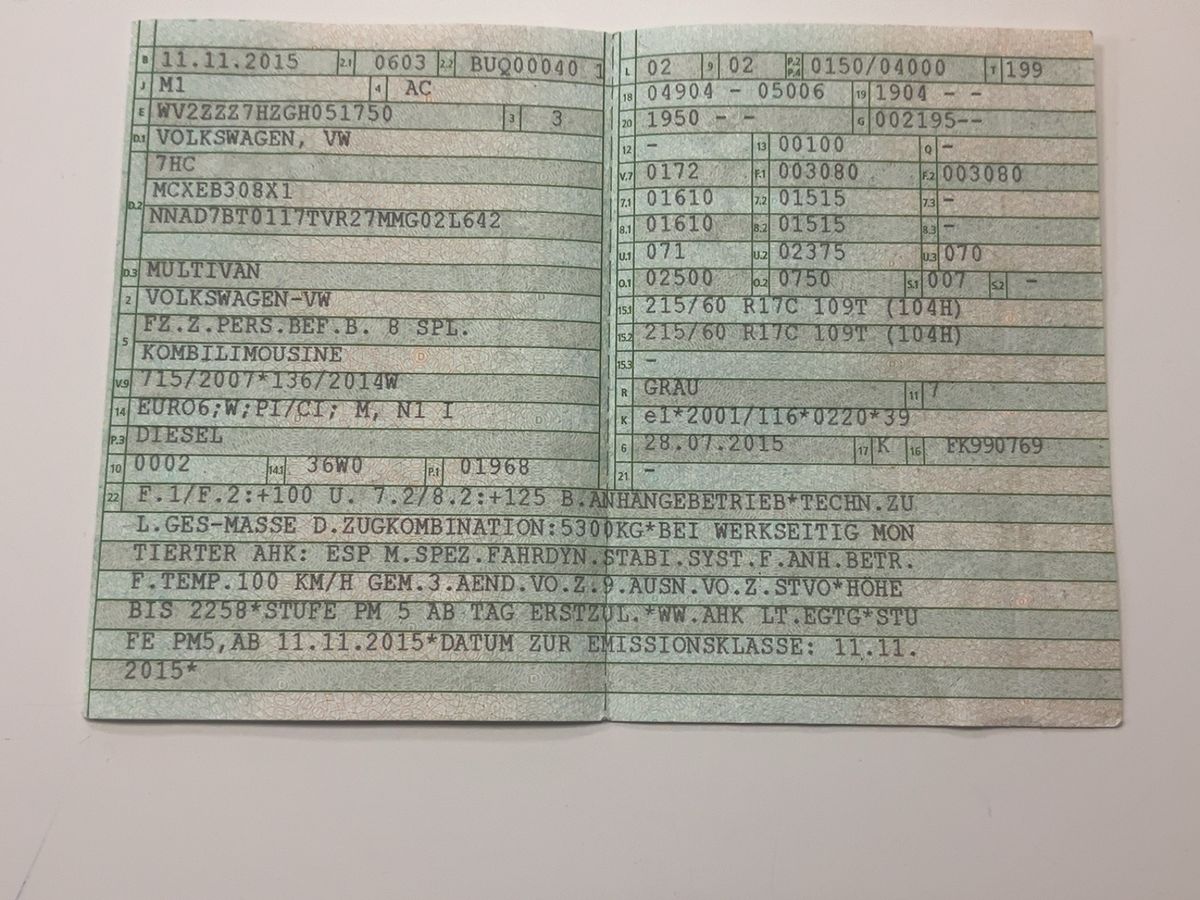 B 11.11.2015 2.1 0603 2.2 BUQ00040 1
J M1 4 AC
E WV2ZZZ7HZGH051750 3 3
D.1 VOLKSWAGEN, VW
7HC
D.2 MCXEB308X1
NNAD7BT0117TVR27MMG02L642
D.3 MULTIVAN
2 VOLKSWAGEN-VW
5 FZ.Z.PERS.BEF.B. 8 SPL.
KOMBILIMOUSINE
V.9 715/2007*136/2014W
14 EURO6;W;PI/CI; M, N1 I
P.3 DIESEL
10 0002 14.1 36W0 P.1 01968
L 02 9 02 P.2 P.4 0150/04000 T 199
18 04904 - 05006 19 1904 - -
20 1950 - - G 002195--
12 - 13 00100 Q -
V.7 0172 F.1 003080 F.2 003080
7.1 01610 7.2 01515 7.3 -
8.1 01610 8.2 01515 8.3 -
U.1 071 U.2 02375 U.3 070
O.1 02500 O.2 0750 S.1 007 S.2 -
15.1 215/60 R17C 109T (104H)
15.2 215/60 R17C 109T (104H)
15.3 -
R GRAU 11 7
K e1*2001/116*0220*39
6 28.07.2015 17 K 16 FK990769
21 -
22 F.1/F.2:+100 U. 7.2/8.2:+125 B.ANHÄNGEBETRIEB*TECHN.ZU
L.GES-MASSE D.ZUGKOMBINATION:5300KG*BEI WERKSEITIG MON
TIERTER AHK: ESP M.SPEZ.FAHRDYN.STABI.SYST.F.ANH.BETR.
F.TEMP.100 KM/H GEM.3.AEND.VO.Z.9.AUSN.VO.Z.STVO*HÖHE
BIS 2258*STUFE PM 5 AB TAG ERSTZUL.*WW.AHK LT.EGTG*STU
FE PM5,AB 11.11.2015*DATUM ZUR EMISSIONSKLASSE: 11.11.
2015*